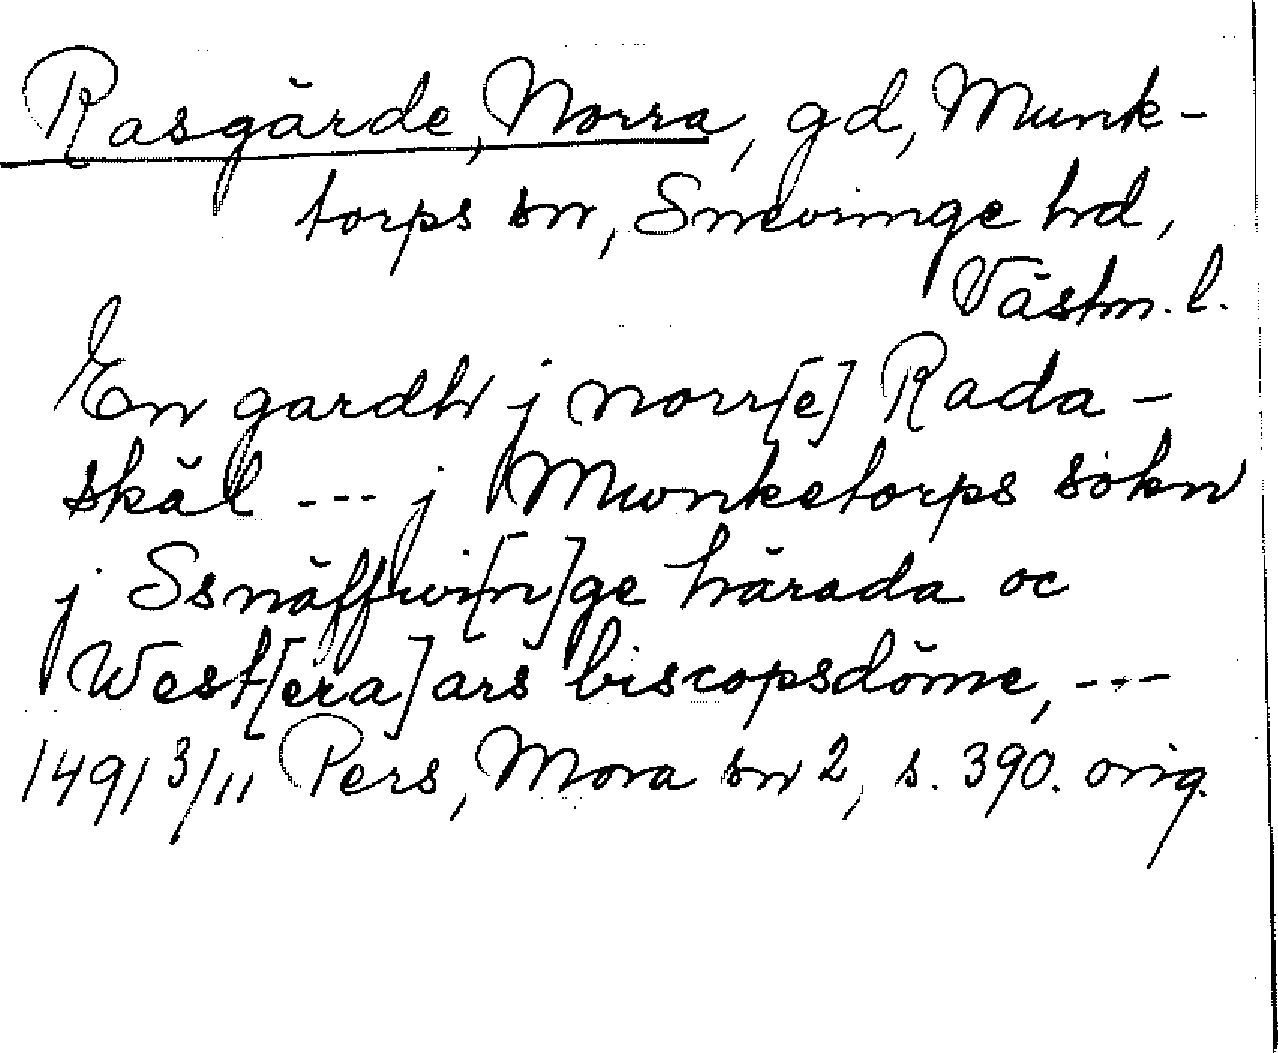 Rasgärde, Norra, gd, Munk-
torps sn, Snevringe hd,
Västm. l.
En gardh j norr[e] Rada-
skäl --- j Munketorps sokn
j Ssnäffwi[n]ge härada oc
West[era]ars biscopsdöme, ---
1491 3/11 Pers, Mora sn 2, s. 390. orig.